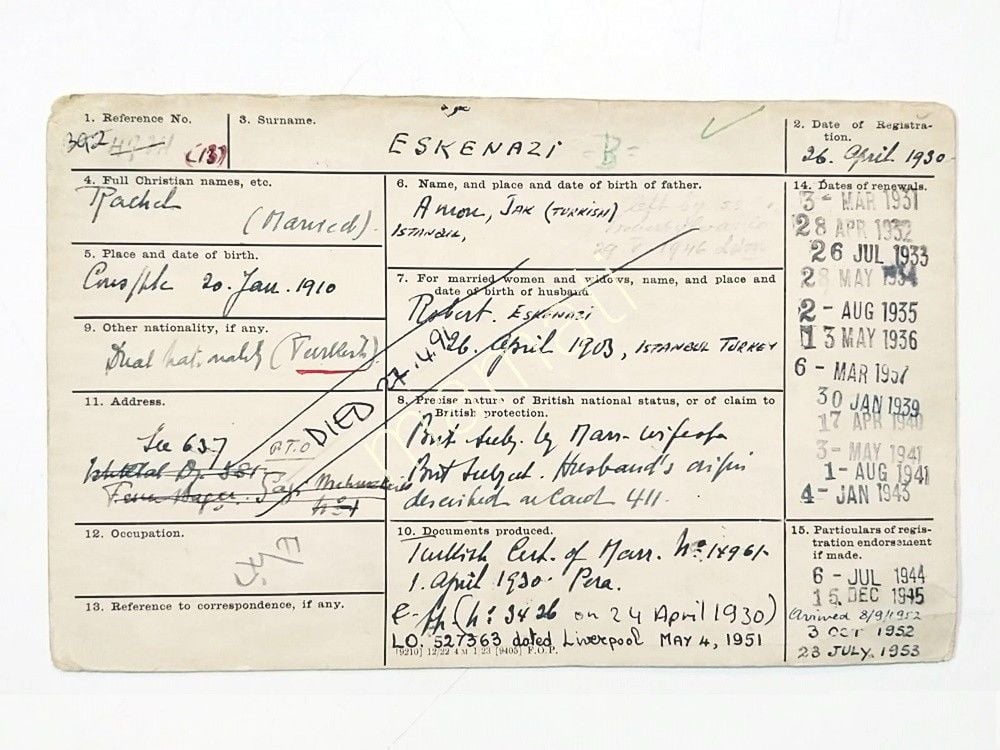 1. Reference No.
392
(13)
3. Surname.
ESKENAZI
=B=
2. Date of Registra-
tion.
26. April 1930.
4. Full Christian names, etc.
Rachel
(Married).
5. Place and date of birth.
Cons/ple 20. Jan. 1910
9. Other nationality, if any.
Dual nationality (Turkish).
11. Address.
See 637
P.T.O
DIED 27.4.91
12. Occupation.
13. Reference to correspondence, if any.
6. Name, and place and date of birth of father.
Amon, JAK (TURKISH)
ISTANBUL,
7. For married women and widows, name, and place and
date of birth of husband
Robert. ESKENAZI
26. April 1903, ISTANBUL TURKEY
8. Precise nature of British national status, or of claim to
British protection.
Brit. Subj. by Marr. wife of a
Brit Subject. Husband's origin
described on Card 411.
10. Documents produced.
Turkish Cert. of Marr. No 14961-
1. April 1930. Pera.
(No: 3426 on 24 April 1930)
LO. 527363 dated Liverpool MAY 4, 1951
[9210] 12/22 4 M 1 23 [9405] F.O.P.
14. Dates of renewals.
3 - MAR 1931
28 APR 1932
26 JUL 1933
28 MAY 1934
2 - AUG 1935
13 MAY 1936
6 - MAR 1937
30 JAN 1939
17 APR 1940
3 - MAY 1941
1 - AUG 1941
4 - JAN 1943
15. Particulars of regis-
tration endorsement
if made.
6 - JUL 1944
15 DEC 1945
(Arrived 8/9/1952
3 OCT 1952
23 JULY 1953